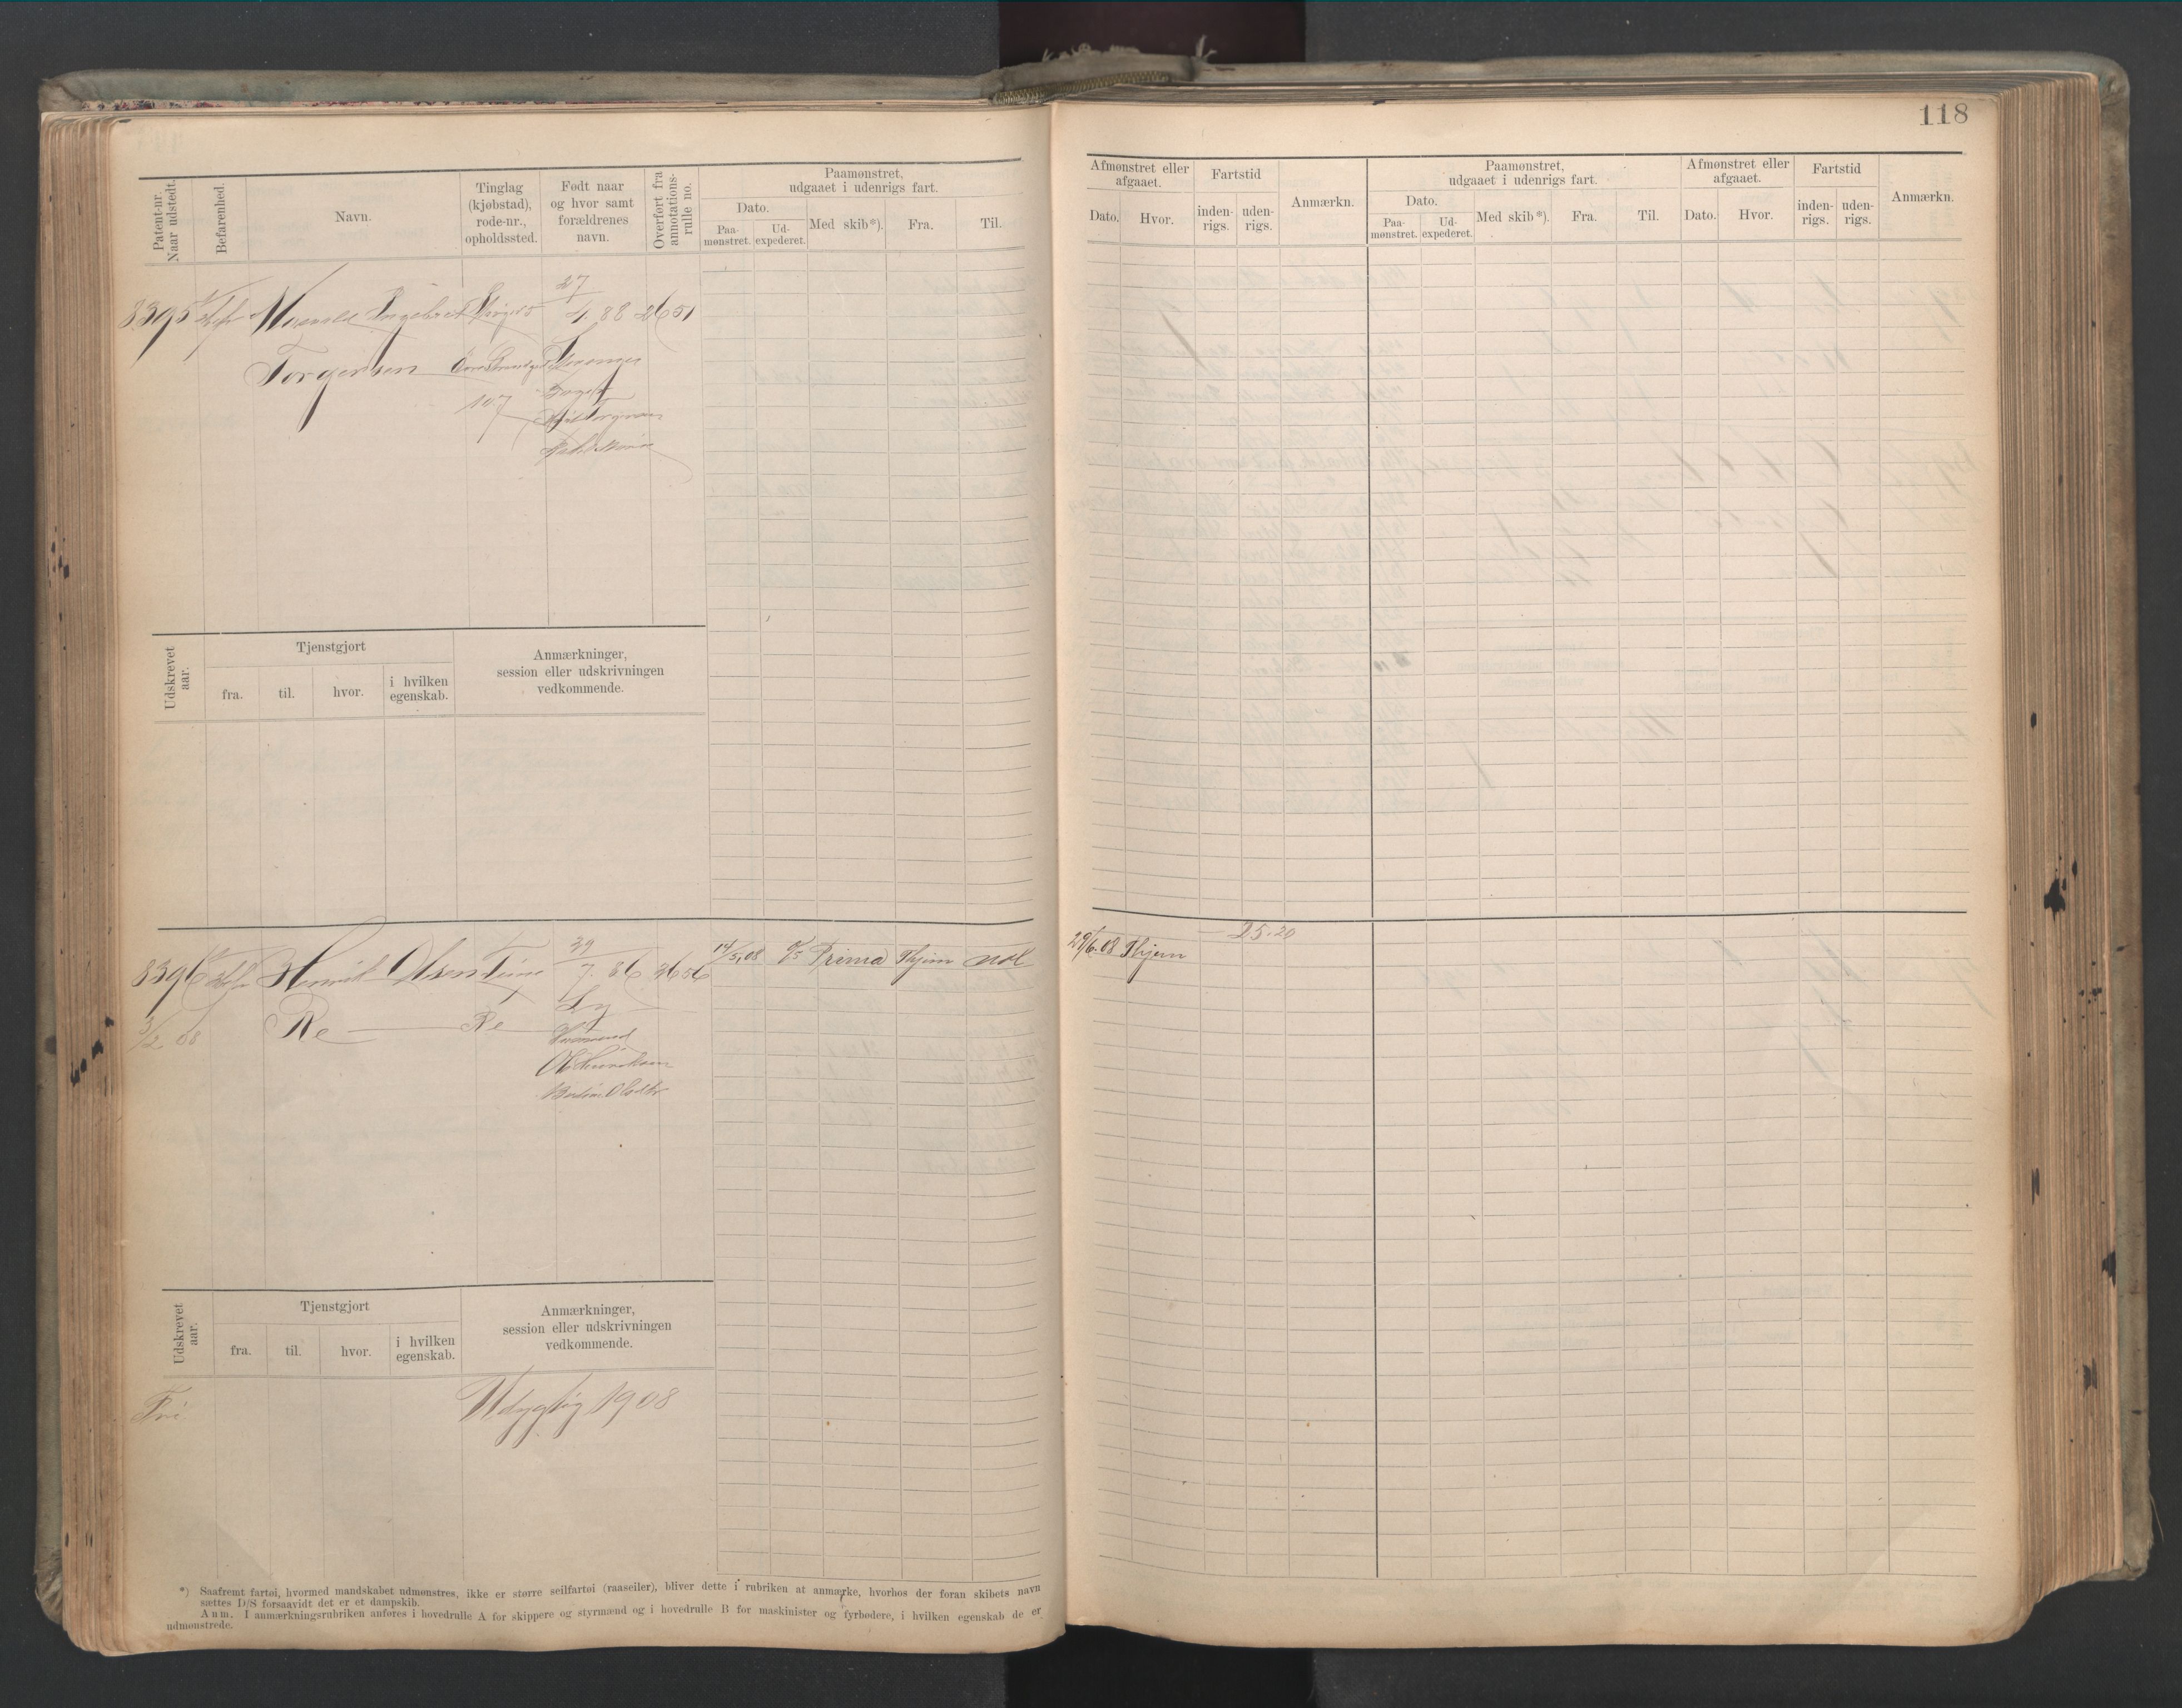 118
Patent-nr. Naar udstedt.
Befarenhed.
Navn.
Tinglag (kjøbstad), rode-nr., opholdssted.
Født naar og hvor samt forældrenes navn.
Overført fra annotations-rulle no.
Paamønstret, udgaaet i udenrigs fart.
Dato.
Paa-mønstret.
Ud-expederet.
Med skib*).
Fra.
Til.
Afmønstret eller afgaaet.
Dato.
Hvor.
Fartstid
inden-rigs.
uden-rigs.
Anmærkn.
Paamønstret, udgaaet i udenrigs fart.
Dato.
Paa-mønstret.
Ud-expederet.
Med skib*).
Fra.
Til.
Afmønstret eller afgaaet.
Dato.
Hvor.
Fartstid
inden-rigs.
uden-rigs.
Anmærkn.
8395
27
4 88 2651
Torgersen
107
Udskrevet aar.
Tjenstgjort
fra.
til.
hvor.
i hvilken egenskab.
Anmærkninger, session eller udskrivningen vedkommende.
8396 Henrik Olsen
7. 86 2656
14/5 08 Prima Thjem Udl
29/6.08 Thjem 25.20
3/2 08
Re Re
Udskrevet aar.
Tjenstgjort
fra.
til.
hvor.
i hvilken egenskab.
Anmærkninger, session eller udskrivningen vedkommende.
Fri
Udygtig 1908
*) Saafremt fartøi, hvormed mandskabet udmønstres, ikke er større seilfartøi (raaseiler), bliver dette i rubriken at anmærke, hvorhos der foran skibets navn
sættes D/S forsaavidt det er et dampskib.
Anm. I anmærkningsrubriken anføres i hovedrulle A for skippere og styrmænd og i hovedrulle B for maskinister og fyrbødere, i hvilken egenskab de er
udmønstrede.